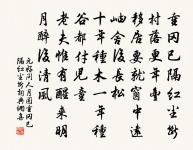 重冈已隔红尘
断村落更年丰
移居要就窗中远
岫舍后长松
十年种木一年种
谷都付儿童
老夫惟有醒来明
月醉后清风
元好问人月圆重冈已
隔红尘断